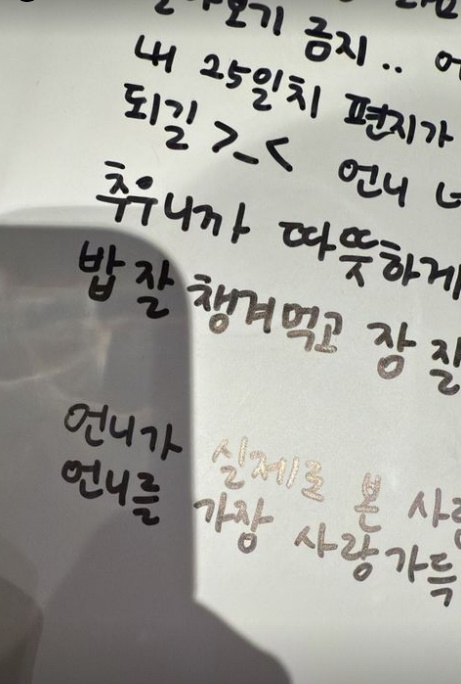 보기 금지..
내 25일치 편지가
되길 >_< 언니
추우니까 따뜻하게
밥 잘 챙겨먹고 잠 잘
언니가 실제로 본 사람
언니를 가장 사랑 가득